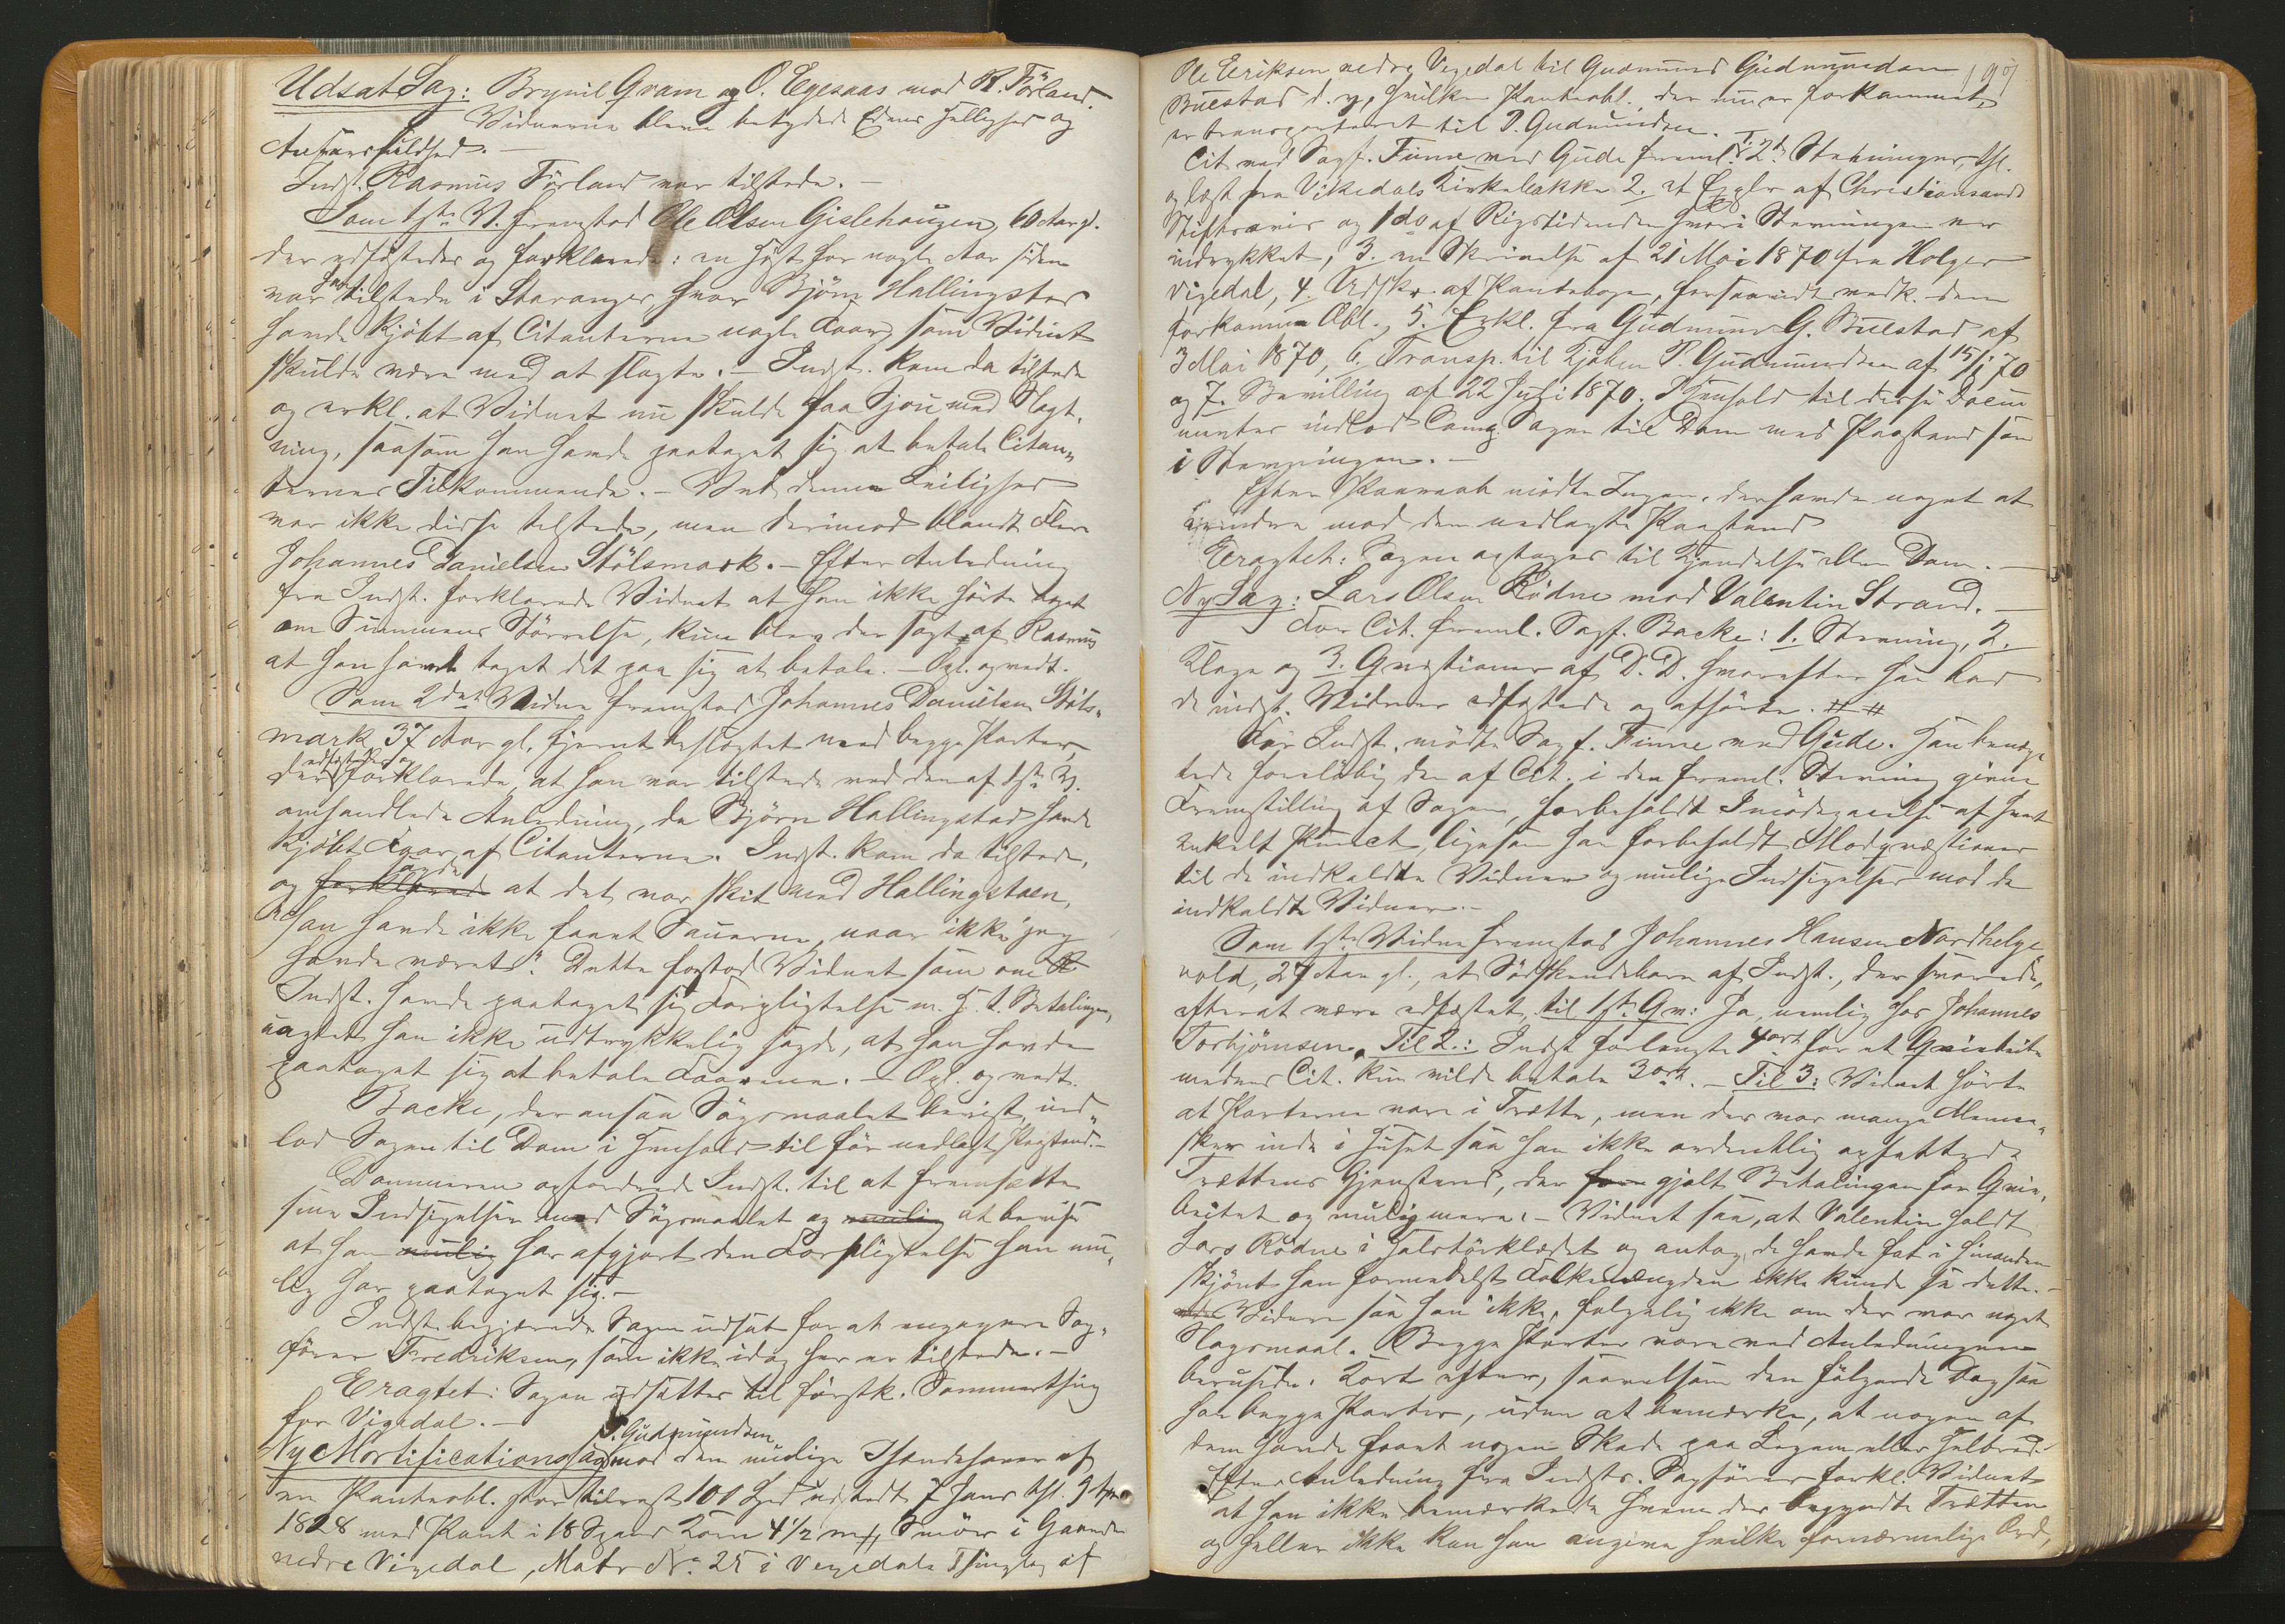 Udsat Sag: Brynil Gram og O. Egesaas mod R. Førland.
Vidnerne bleve betydede Edens Hellighed og
Ansvarsfuldhed. —
Indst. Rasmus Førland var tilstede. —
Som 1ste V. fremstod Ole Olsen Gislehaugen, 60 Aar gl.
der edfæstedes og forklarede: en Høst for nogle Aar siden
var han tilstede i Stavanger hvor Bjørn Hallingstad
havde kjøbt af Citanterne nogle Faar, som Vidnet
skulde være med at slagte. — Indst. kom da tilstede
og erkl. at Vidnet nu skulde faa Sjou med Slagt-
ning, saasom han havde paataget sig at betale Citan-
ternes Tilkommende. — Ved denne Leilighed
var ikke disse tilstede, men derimod blandt Flere
Johannes Danielsen Stølsmark. — Efter Anledning
fra Indst. forklarede Vidnet at han ikke hørte noget
om Summens Størrelse, kun blev der sagt af Rasmus
at han havde taget det paa sig at betale. — Opl. og vedt.
Som 2det Vidne fremstod Johannes Danielsen Støls-
mark 37 Aar gl. fjernt beslægtet med begge Parter,
der edfæstedes og forklarede, at han var tilstede ved den af 1ste V.
omhandlede Anledning, da Bjørn Hallingstad havde
kjøbt Faar af Citanterne. Indst. kom da tilstede,
og forklarede sagde at det var skit med Hallingstaen,
"han havde ikke faaet Sauerne, naar ikke jeg
havde været". Dette forstod Vidnet som om
Indst. havde paataget sig Forpligtelse m. H. t. Betalingen,
uagtet han ikke udtrykkelig sagde, at han havde
paataget sig at betale Faarene. — Opl. og vedt.
Backe, der ansaa Søgsmaalet bevist, ind-
lod Sagen til Dom i Henhold til før nedlagt Paastand. —
Dommeren opfordrede Indst. til at fremsætte
sine Indsigelser mod Søgsmaalet og mulig at bevise
at han mulig har afgjort den Forpligtelse han mu-
lig har paataget sig. —
Indst. begjærede Sagen udsat for at engagere Sag-
fører Fredriksen, som ikke idag her er tilstede. —
Eragtet: Sagen udsættes til førstk. Sommerthing
for Vigedal. —
P. Gudmundsen
Ny Mortificationssag mod den mulige Ihændehaver af
en Panteobl. stor tilrest 100 Spd udstedt 7 Janr thl. 9
1828 med Pant i 18 Spand Korn 4 1/2 Smør i Gaarden
nedre Vigedal, Matr No. 25 i Vegedals Thinglag af
197
Ole Eeriksen nedre Vegedal til Gudmund Gudmundsen
Buestad d. y., hvilken Panteobl., der nu er forkommet,
er transporteret til P. Gudmundsen.
Cit. ved Sagf. Finne ved Gude freml. 1. 2de Stevninger, thl.
og læst fra Vikedals Kirkebakke 2. et Explr af Christiansands
Stiftsavis og 1 do af Rigstidenden hvori Stevningen var
indrykket, 3. en Skrivelse af 21 Mai 1870 fra Holger
Vigedal, 4. Udskr. af Pantebogen, forsaavidt vedk. den
forkomne Obl., 5. Erkl. fra Gudmund G. Buestad af
3 Mai 1870, 6. Transp. til P. Gudmundsen af 15/1 70
og 7. Bevilling af 22 Juli 1870. I Henhold til disse Docu-
menter indlod Comp. Sagen til Dom med Paastand som
i Stevningen. —
Efter Paaraab mødte Ingen, der havde noget at
erindre mod den nedlagte Paastand
Eragtet: Sagen optages til Kjendelse eller Dom. —
Ny Sag: Lars Olsen Rødne mod Valentin Strand. —
For Cit. freml. Sagf. Backe: 1. Stevning, 2.
Klage og 3. Qvæstioner af D. D. hvorefter han bad
de indst. Vidner edfæstede og afhørte.
For Indst. mødte Sagf. Finne ved Gude. Han benæg-
tede foreløbig den af Cit. i den freml. Stevning givne
Fremstilling af Sagen, forbeholdt Imødegaaelse af hvert
enkelt Punct, ligesom han forbeholdt Modqvæstioner
til de indkaldte Vidner og mulige Indsigelser mod de
indkaldte Vidner. —
Som 1ste Vidne fremstod Johannes Hansen Nordhelge
vold, 27 Aar gl., et Sødskendebarn af Indst., der svarede,
efterat være edfæstet, til 1ste Qv: Ja, nemlig hos Johannes
Torbjørnsen. Til 2.: Indst. forlangte 4 ort for et Gniebeite
medens Cit. kun vilde betale 3 ort. — Til 3: Vidnet hørte
at Parterne vare i Trætte, men der var mange Menne-
sker inde i Huset saa han ikke ordentlig opfattede
Trættens Gjenstand, der gjalt Betalingen for Gnie-
beitet og mulig mere. — Vidnet saa, at Valentin holdt
Lars Rødne i Halstørklædet og antog, de havde fat i hinanden
skjønt han formedelst Folkemængden ikke kunde se dette. —
Videre saa han ikke, følgelig ikke om der var noget
Slagsmaal. Begge Parter vare ved Anledningen
berusede. Kort efter, saavelsom den følgende Dag saa
han begge Parter, uden at bemærke, at nogen af
dem havde faaet nogen Skade paa Legem eller Helbred. —
Efter Anledning fra Indsts. Sagfører forkl. Vidnet
at han ikke bemærkede hvem der begyndte Trætten
og heller ikke kan han angive hvilke fornærmelige Ord,